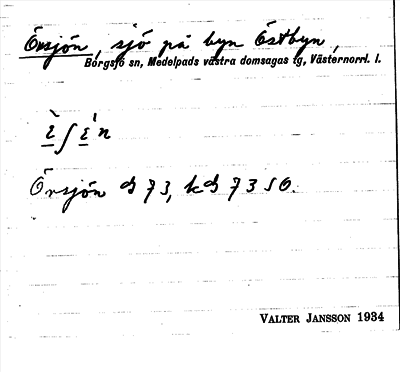 Örsjön, sjö på byn Östbyn,
Borgsjö sn, Medelpads västra domsagas tg, Västernorrl. l.
Örsjön G 73, kG 73 SO.
VALTER JANSSON 1934